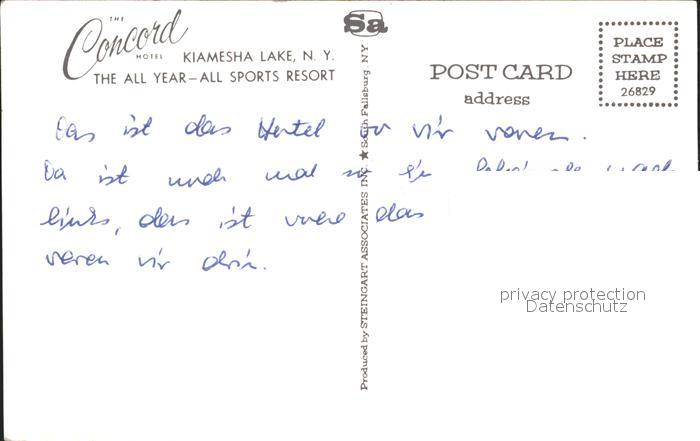 THE
Concord
HOTEL
KIAMESHA LAKE, N. Y.
THE ALL YEAR—ALL SPORTS RESORT
Sa
POST CARD
address
PLACE
STAMP
HERE
26829
Das ist das Hotel wir waren.
Da ist mal
links, das ist das
waren wir drin.
Produced by STEINGART ASSOCIATES INC. ★ South Fallsburg, NY
privacy protection
Datenschutz